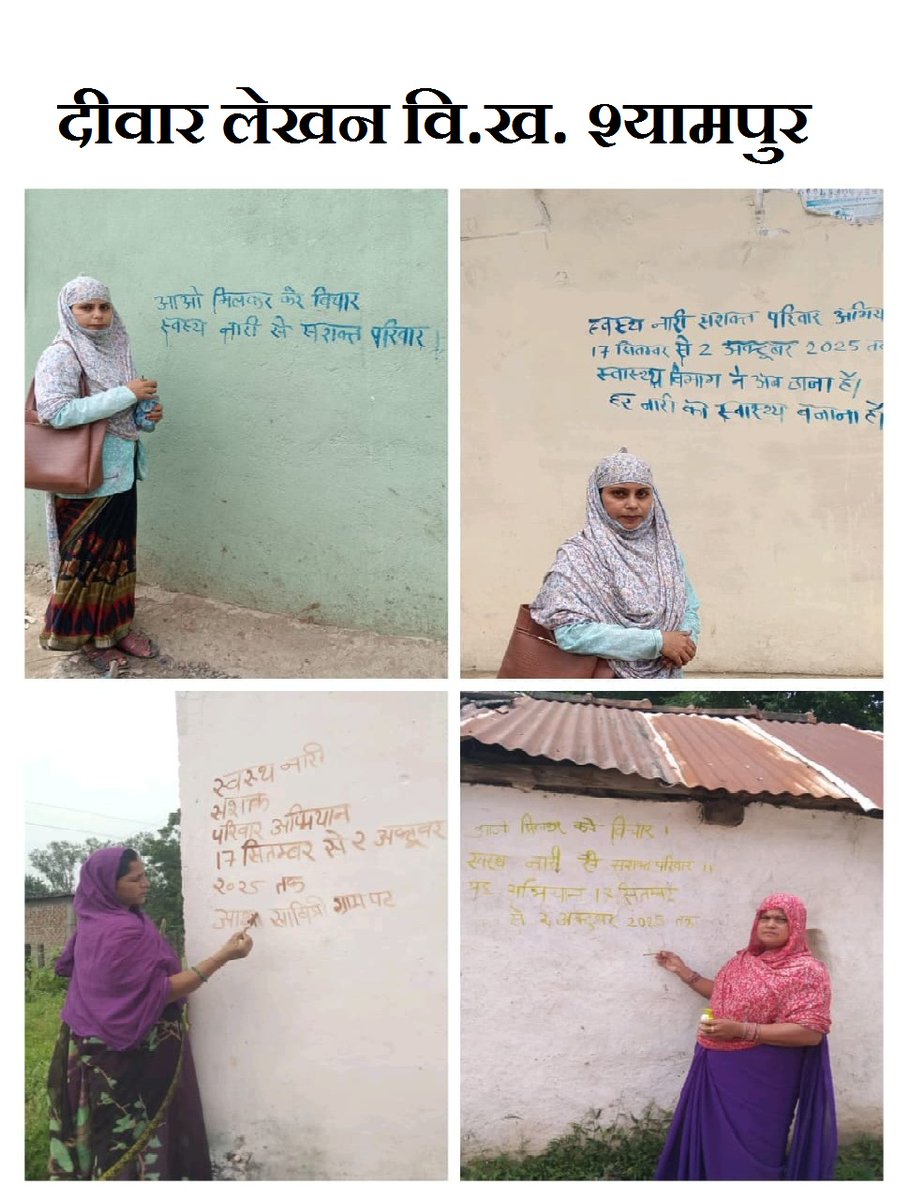 दीवार लेखन वि.ख. श्यामपुर
आओ मिलकर करे विचार
स्वस्थ नारी से सशक्त परिवार !
स्वस्थ नारी सशक्त परिवार अभिय
17 सितम्बर से 2 अक्टूबर 2025 तक
स्वास्थ्य विभाग ने अब ठाना है।
हर नारी को स्वास्थ्य बनाना है।
स्वस्थ नारी
सशक
परिवार अभियान
17 सितम्बर से 2 अक्टूबर
2025 तक
आशा सावित्री ग्राम पट
विचार।
स्वस्थ नारी से सशक्त परिवार।।
यह अभियान 17 सितम्बर
से 2 अक्टूबर 2025 तक